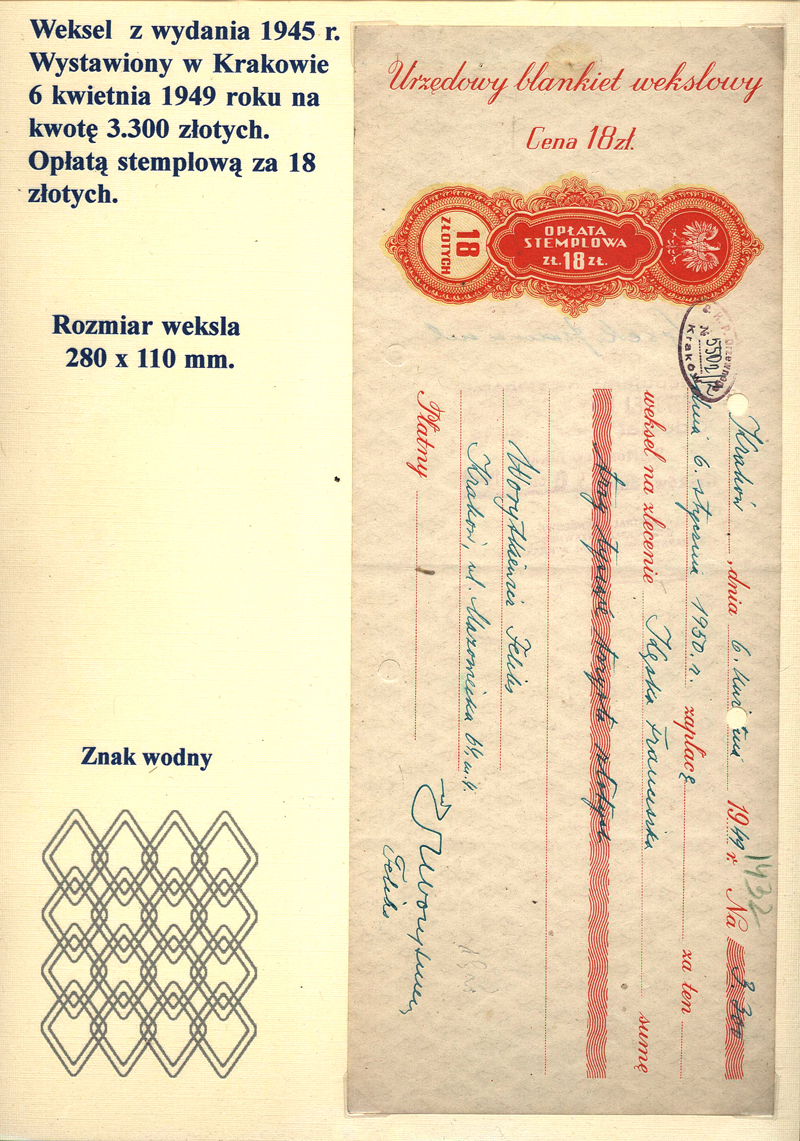 Weksel z wydania 1945 r.
Wystawiony w Krakowie
6 kwietnia 1949 roku na
kwotę 3.300 złotych.
Opłatą stemplową za 18
złotych.
Rozmiar weksla
280 x 110 mm.
Znak wodny
Urzędowy blankiet wekslowy
Cena 18zł.
18
ZŁOTYCH
OPŁATA
STEMPLOWA
ZŁ. 18 ZŁ.
Kraków
1432
Kraków, dnia 6. kwietnia 1949 r. Na 3.300
dnia 6. stycznia 1950. r. zapłacę za ten
weksel na zlecenie Franciszka sumę
trzy tysiące trzysta złotych
Feliks
Kraków, ul. Mazowiecka
Płatny
Feliks